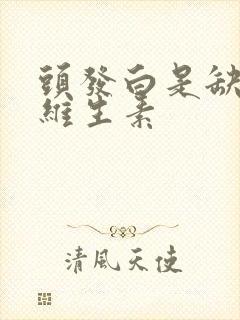 頭發白是缺
維生素
清風天使